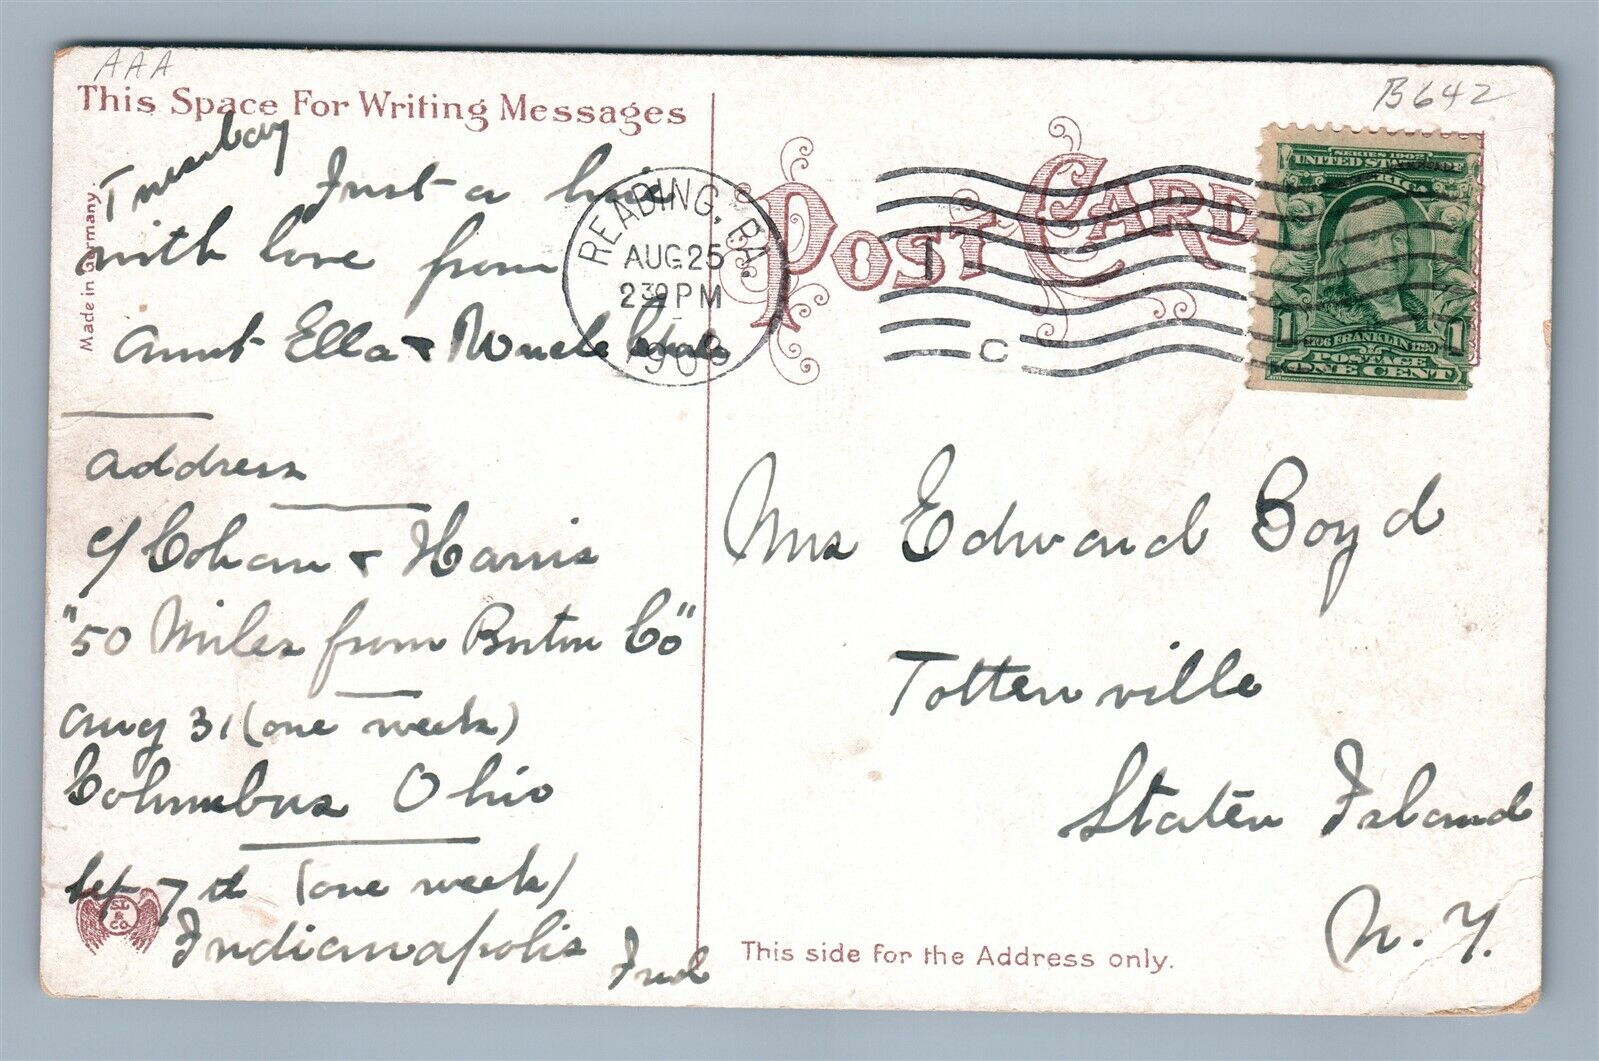 AAA
B642
This Space For Writing Messages
Tuesday
Just a line
with love from
Aunt Ella & Uncle
Made in Germany.
Address
c/ Cohan & Harris
"50 Miles from Boston Co"
Aug 31 (one week)
Columbus Ohio
Sep 7th (one week)
Indianapolis Ind
ST & CO
READING, PA.
AUG 25
230 PM
1908
C
POST CARD
SERIES 1902
UNITED STATES OF AMERICA
1 1
1706 FRANKLIN 1790
POSTAGE
ONE CENT
Mrs Edward Boyd
Tottenville
Staten Island
N.Y.
This side for the Address only.